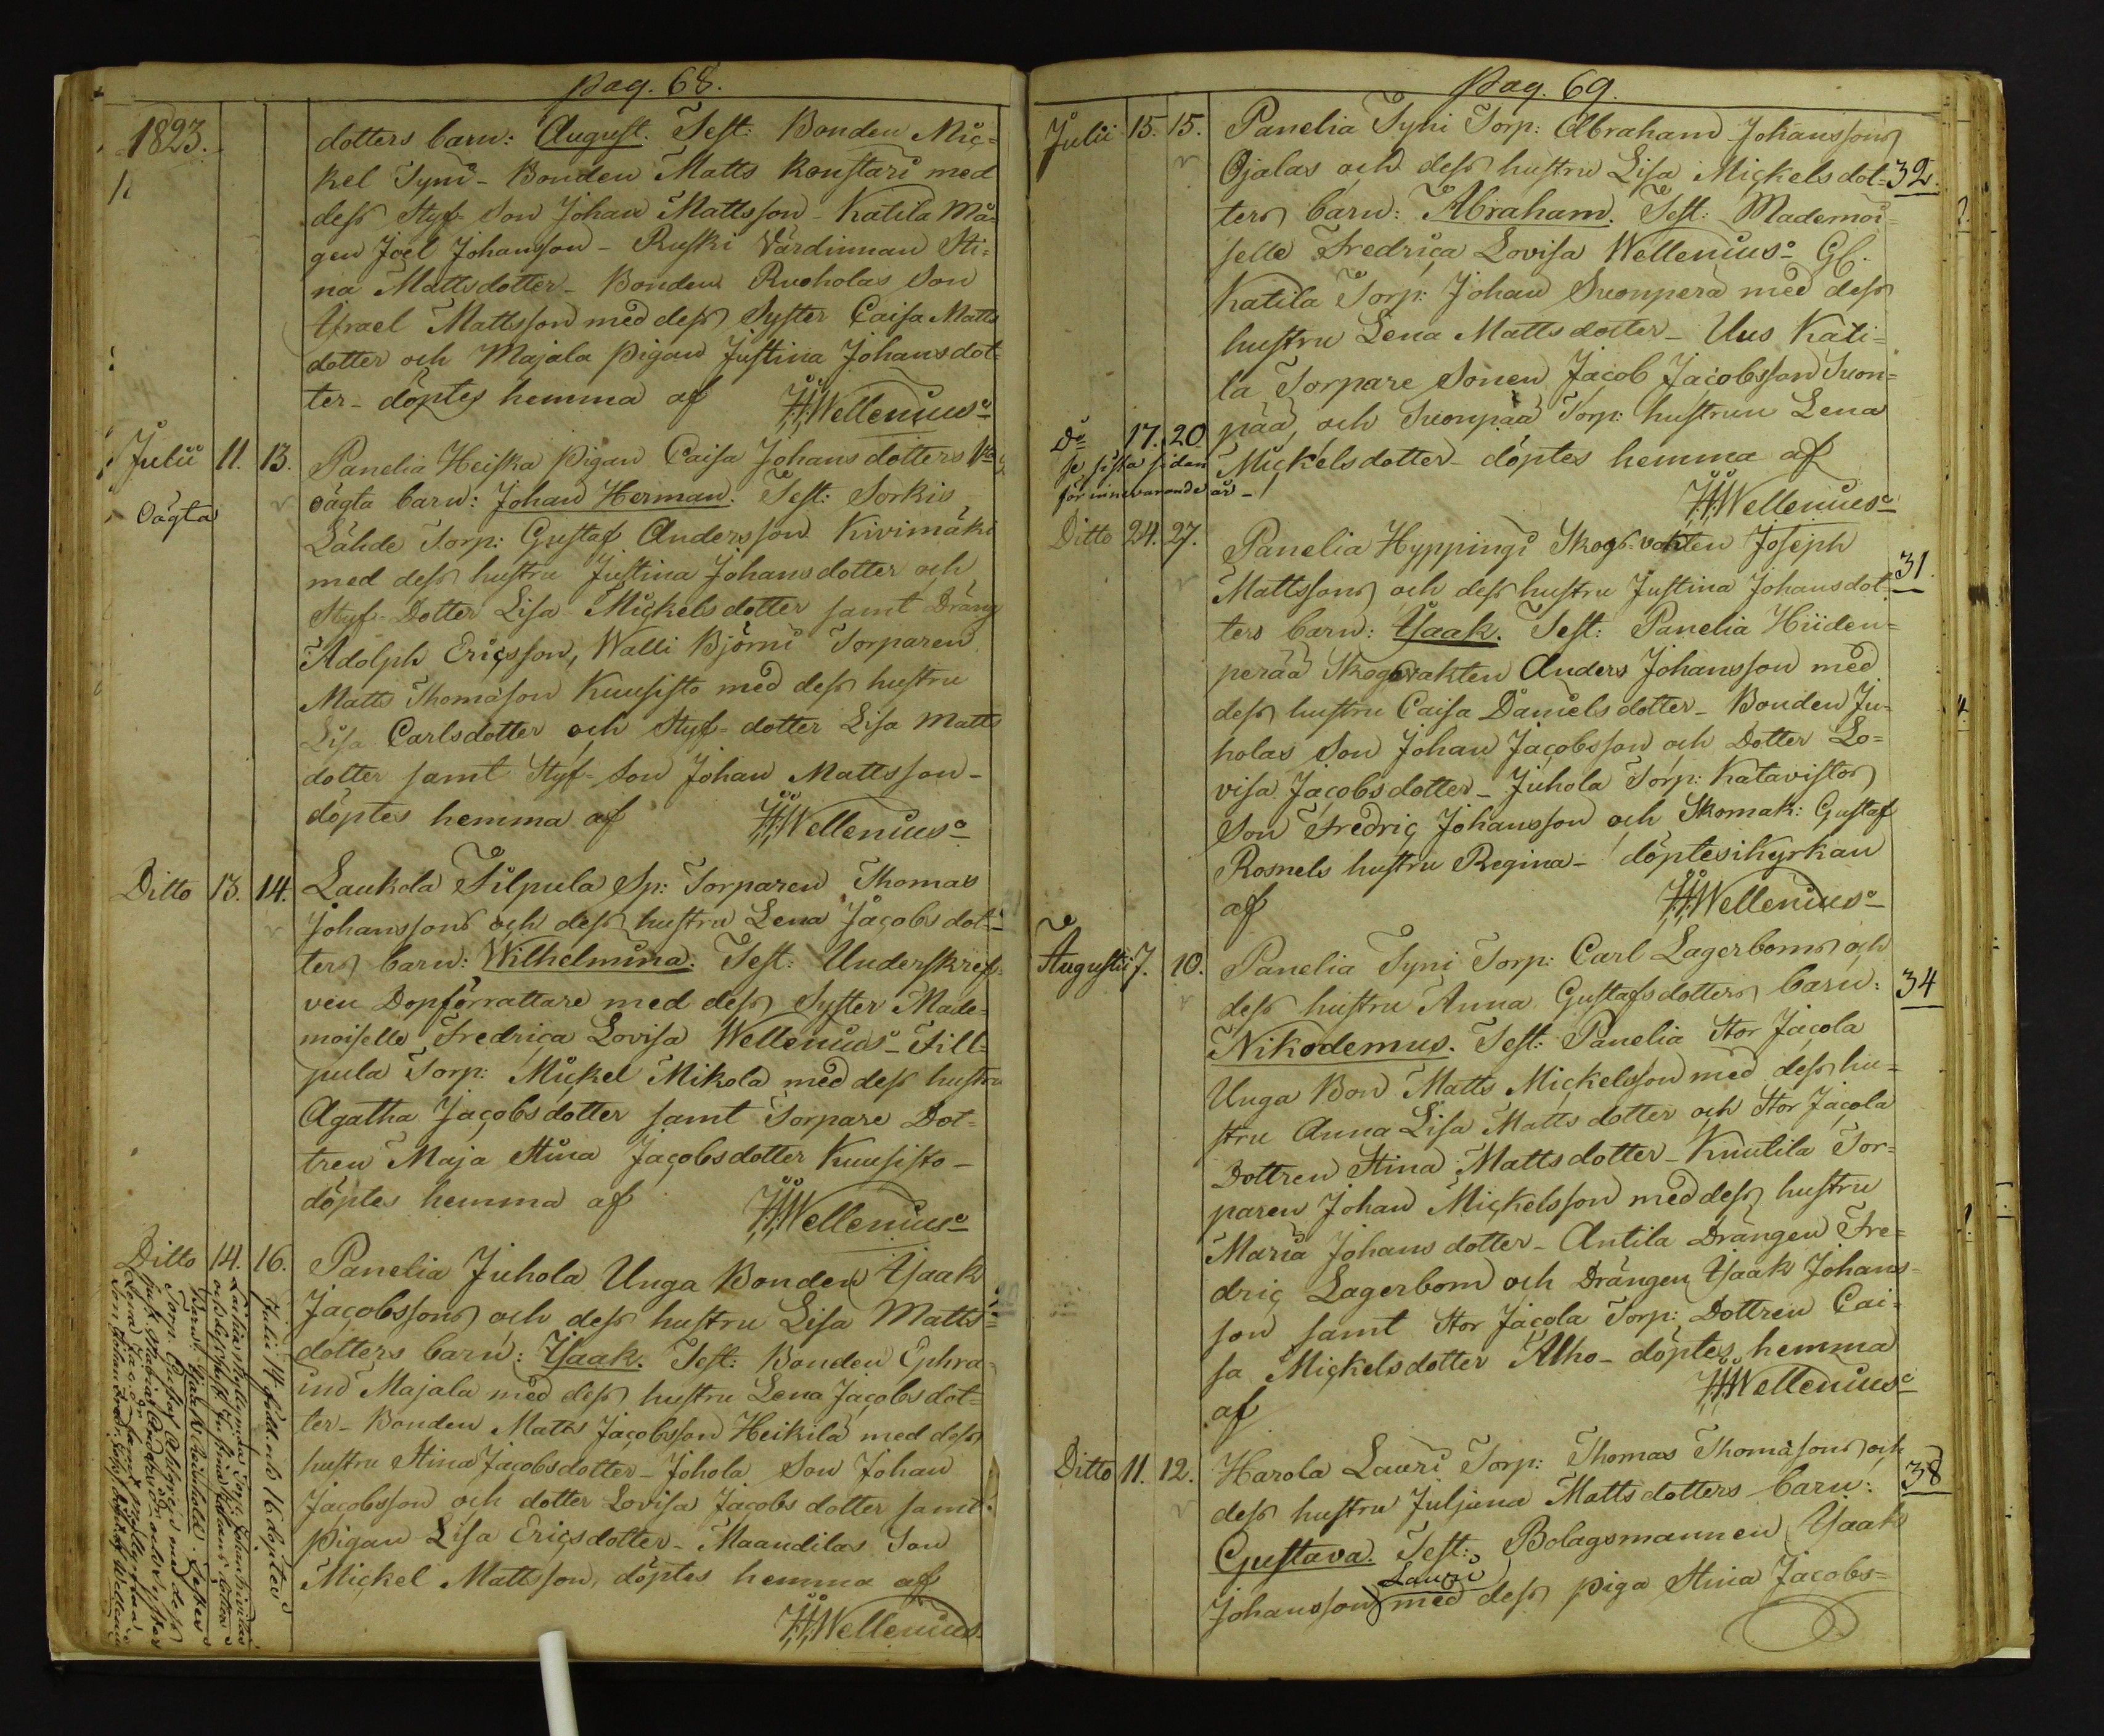 pag. 68.
1823.
dotters barn: August. Test: Bonden Mic=
kel Tyni - Bonden Matts Konstari med
dess Styf-Son Johan Mattsson - Katila Må=
gen Joël Johansson - Ruski Värdinnan Sti=
na Mattsdotter - Bonden Ruoholas Son
Israel Mattsson med dess Syster Caisa Matts
dotter och Majala pigan Justina Johansdot=
ter - döptes hemma af HHWellenius
Julii 11. 13. Panelia Heiska pigan Caisa Johans dotters
Oägta
oägta barn: Johan Herman. Test: Sorkis
Lähde Torp: Gustaf Andersson Kivimäki
med dess hustru Justina Johansdotter och
Styf-Dotter Lisa Mickelsdotter samt Dräng
Adolph Ericsson, Walli Björni Torparen
Matts Thomasson Kuusisto med dess hustru
Lisa Carlsdotter och Styf-dotter Lisa Matts
dotter samt Styf-Son Johan Mattsson -
döptes hemma af HHWellenius
Ditto 13. 14. Laukola Filpula Sp: Torparen Thomas
Johanssons och dess hustru Lena Jacobsdot=
ters barn: Wilhelmina. Test: Underskref=
ven Dopförrattare med dess Syster Made=
moiselle Fredrica Lovisa Wellenius - Fill=
pula Torp: Mickel Mikola med dess hustru
Agatha Jacobsdotter samt Torpare Dot=
tren Maja Stina Jacobsdotter Kuusisto -
döptes hemma af HHWellenius
Ditto 14. 16. Panelia Juhola Unga Bonden Isaak
Jacobssons och dess hustru Lisa Matts=
dotters barn: Isaak. Test: Bonden Ephra=
im Majala med dess hustru Lena Jacobsdot=
ter - Bonden Matts Jacobsson Heikilä med dess
hustru Stina Jacobsdotter - Johola Son Johan
Jacobsson och dotter Lovisa Jacobs dotter samt
pigan Lisa Ericsdotter - Maandilas Son
Mickel Mattsson, döptes hemma af
HHWellenius
Julii 14 född och 16 döptes
pag. 69.
Julii 15. 15. Panelia Tyni Torp: Abraham Johanssons
Ojalas och dess hustru Lisa Mickelsdot= 32.
ters barn: Abraham. Test: Mademoi=
selle Fredrica Lovisa Wellenius - Gl.
Katila Torp: Johan Suonperä med dess
hustru Lena Mattsdotter - Uus Kati=
la Torpare Sonen Jacob Jacobsson Suon=
pää, och Suonpää Torp: hustrun Lena
Do 17. 20
se sista sidan
för innevarande år -
Mickelsdotter - döptes hemma af
HHWellenius
Ditto 24. 27. Panelia Hyppingi Skogs-vakten Joseph
Mattssons och dess hustru Justina Johansdot= 31.
ters barn: Isaak. Test: Panelia Hiiden=
perää Skogsvakten Anders Johansson med
dess hustru Caisa Danielsdotter - Bonden Ju=
holas Son Johan Jacobsson och Dotter Lo=
visa Jacobsdotter - Juhola Torp: Katavistos
Son Fredric Johansson och Skomak: Gustaf
Rosnels hustru Regina - döptes i Kyrkan
af HHWellenius
Augustii 7. 10. Panelia Tyni Torp: Carl Lagerboms och
dess hustru Anna Gustafsdotters barn: 34
Nikodemus. Test: Panelia Stor Jacola
Unga Bon Matts Mickelsson med dess hu=
stru Anna Lisa Matts dotter och Stor Jacola
Dottren Stina Mattsdotter - Knutila Tor=
paren Johan Mickelsson med dess hustru
Maria Johans dotter - Antila Drängen Fre=
dric Lagerbom och Drängen Isaak Johans=
son samt Stor Jacola Torp: Dottren Cai=
sa Mickelsdotter Alho - döptes hemma
af HHWellenius
Ditto 11. 12. Harola Lauri Torp: Thomas Thomassons och
dess hustru Juljana Mattsdotters barn: 38
Gustava. Test: Bolagsmannen Isaak
Johansson Lauri med dess piga Stina Jacobs=